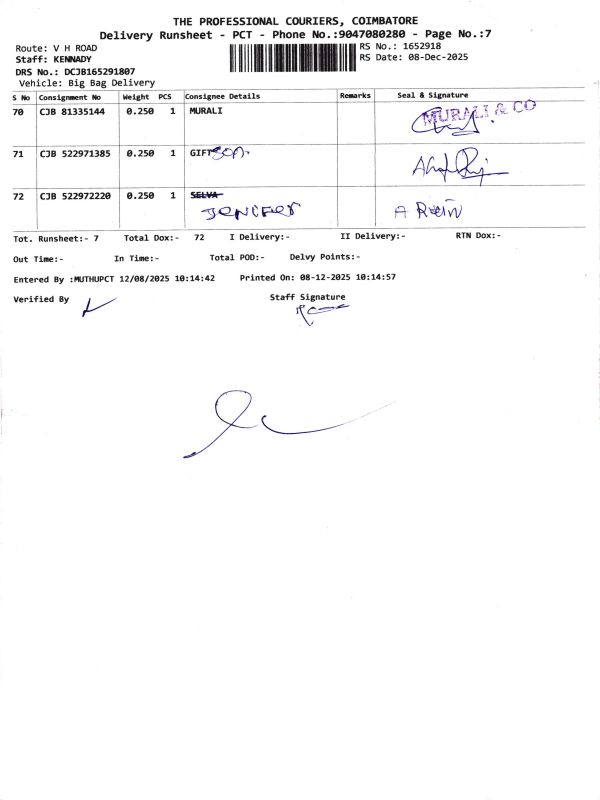 THE PROFESSIONAL COURIERS, COIMBATORE
Delivery Runsheet - PCT - Phone No.:9047080280 - Page No.:7
Route: V H ROAD
RS No.: 1652918
Staff: KENNADY
RS Date: 08-Dec-2025
DRS No.: DCJB165291807
Vehicle: Big Bag Delivery
S No Consignment No Weight PCS Consignee Details Remarks Seal & Signature
70 CJB 81335144 0.250 1 MURALI MURALI & CO
71 CJB 522971385 0.250 1 GIFTSON
72 CJB 522972220 0.250 1 SELVA
JENIFER
Tot. Runsheet:- 7 Total Dox:- 72 I Delivery:- II Delivery:- RTN Dox:-
Out Time:- In Time:- Total POD:- Delvy Points:-
Entered By :MUTHUPCT 12/08/2025 10:14:42 Printed On: 08-12-2025 10:14:57
Verified By Staff Signature